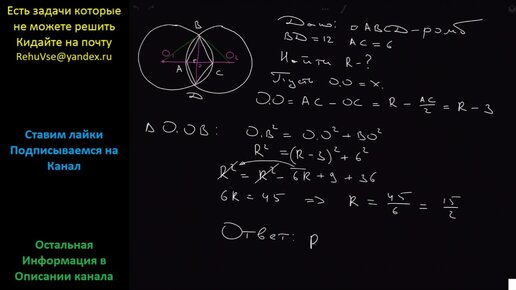 Есть задачи которые
не можете решить
Кидайте на почту
RehuVse@yandex.ru
Ставим лайки
Подписываемся на
Канал
Остальная
Информация в
Описании канала
B
O₁ O₂
A O C
D
Дано: ◇ABCD - ромб
BD = 12 AC = 6
Найти R - ?
Пусть O₁O = x.
O₁O = AC - OC = R - AC/2 = R - 3
Δ O₁OB: O₁B² = O₁O² + BO²
R² = (R - 3)² + 6²
R² = R² - 6R + 9 + 36
6R = 45 ⇒ R = 45/6 = 15/2
Ответ: R